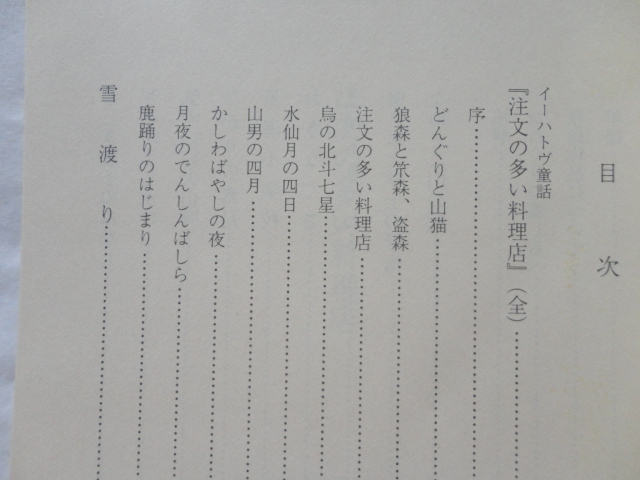 目次
イーハトヴ童話
『注文の多い料理店』（全）……………
序……………………………
どんぐりと山猫……………………
狼森と笊森、盗森……………………
注文の多い料理店……………………
烏の北斗七星……………………
水仙月の四日……………………
山男の四月……………………
かしわばやしの夜……………………
月夜のでんしんばしら……………………
鹿踊りのはじまり……………………
雪渡り……………………